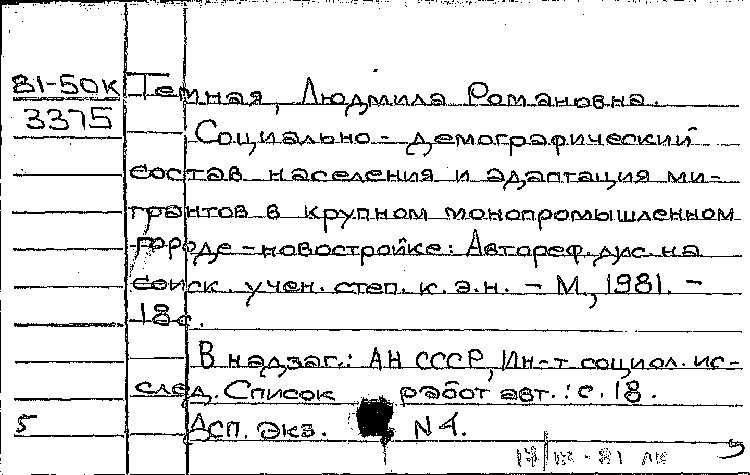 81-50к Темная, Людмила Романовна.
3375 Социально-демографический
состав населения и адаптация ми-
грантов в крупном монопромышленном
городе-новостройке: Автореф. дис. на
соиск. учен. степ. к. э. н. – М., 1981. –
18 с.
В надзаг.: АН СССР, Ин-т социол. ис-
след. Список работ авт.: с. 18.
5 Асп. экз. N 4.